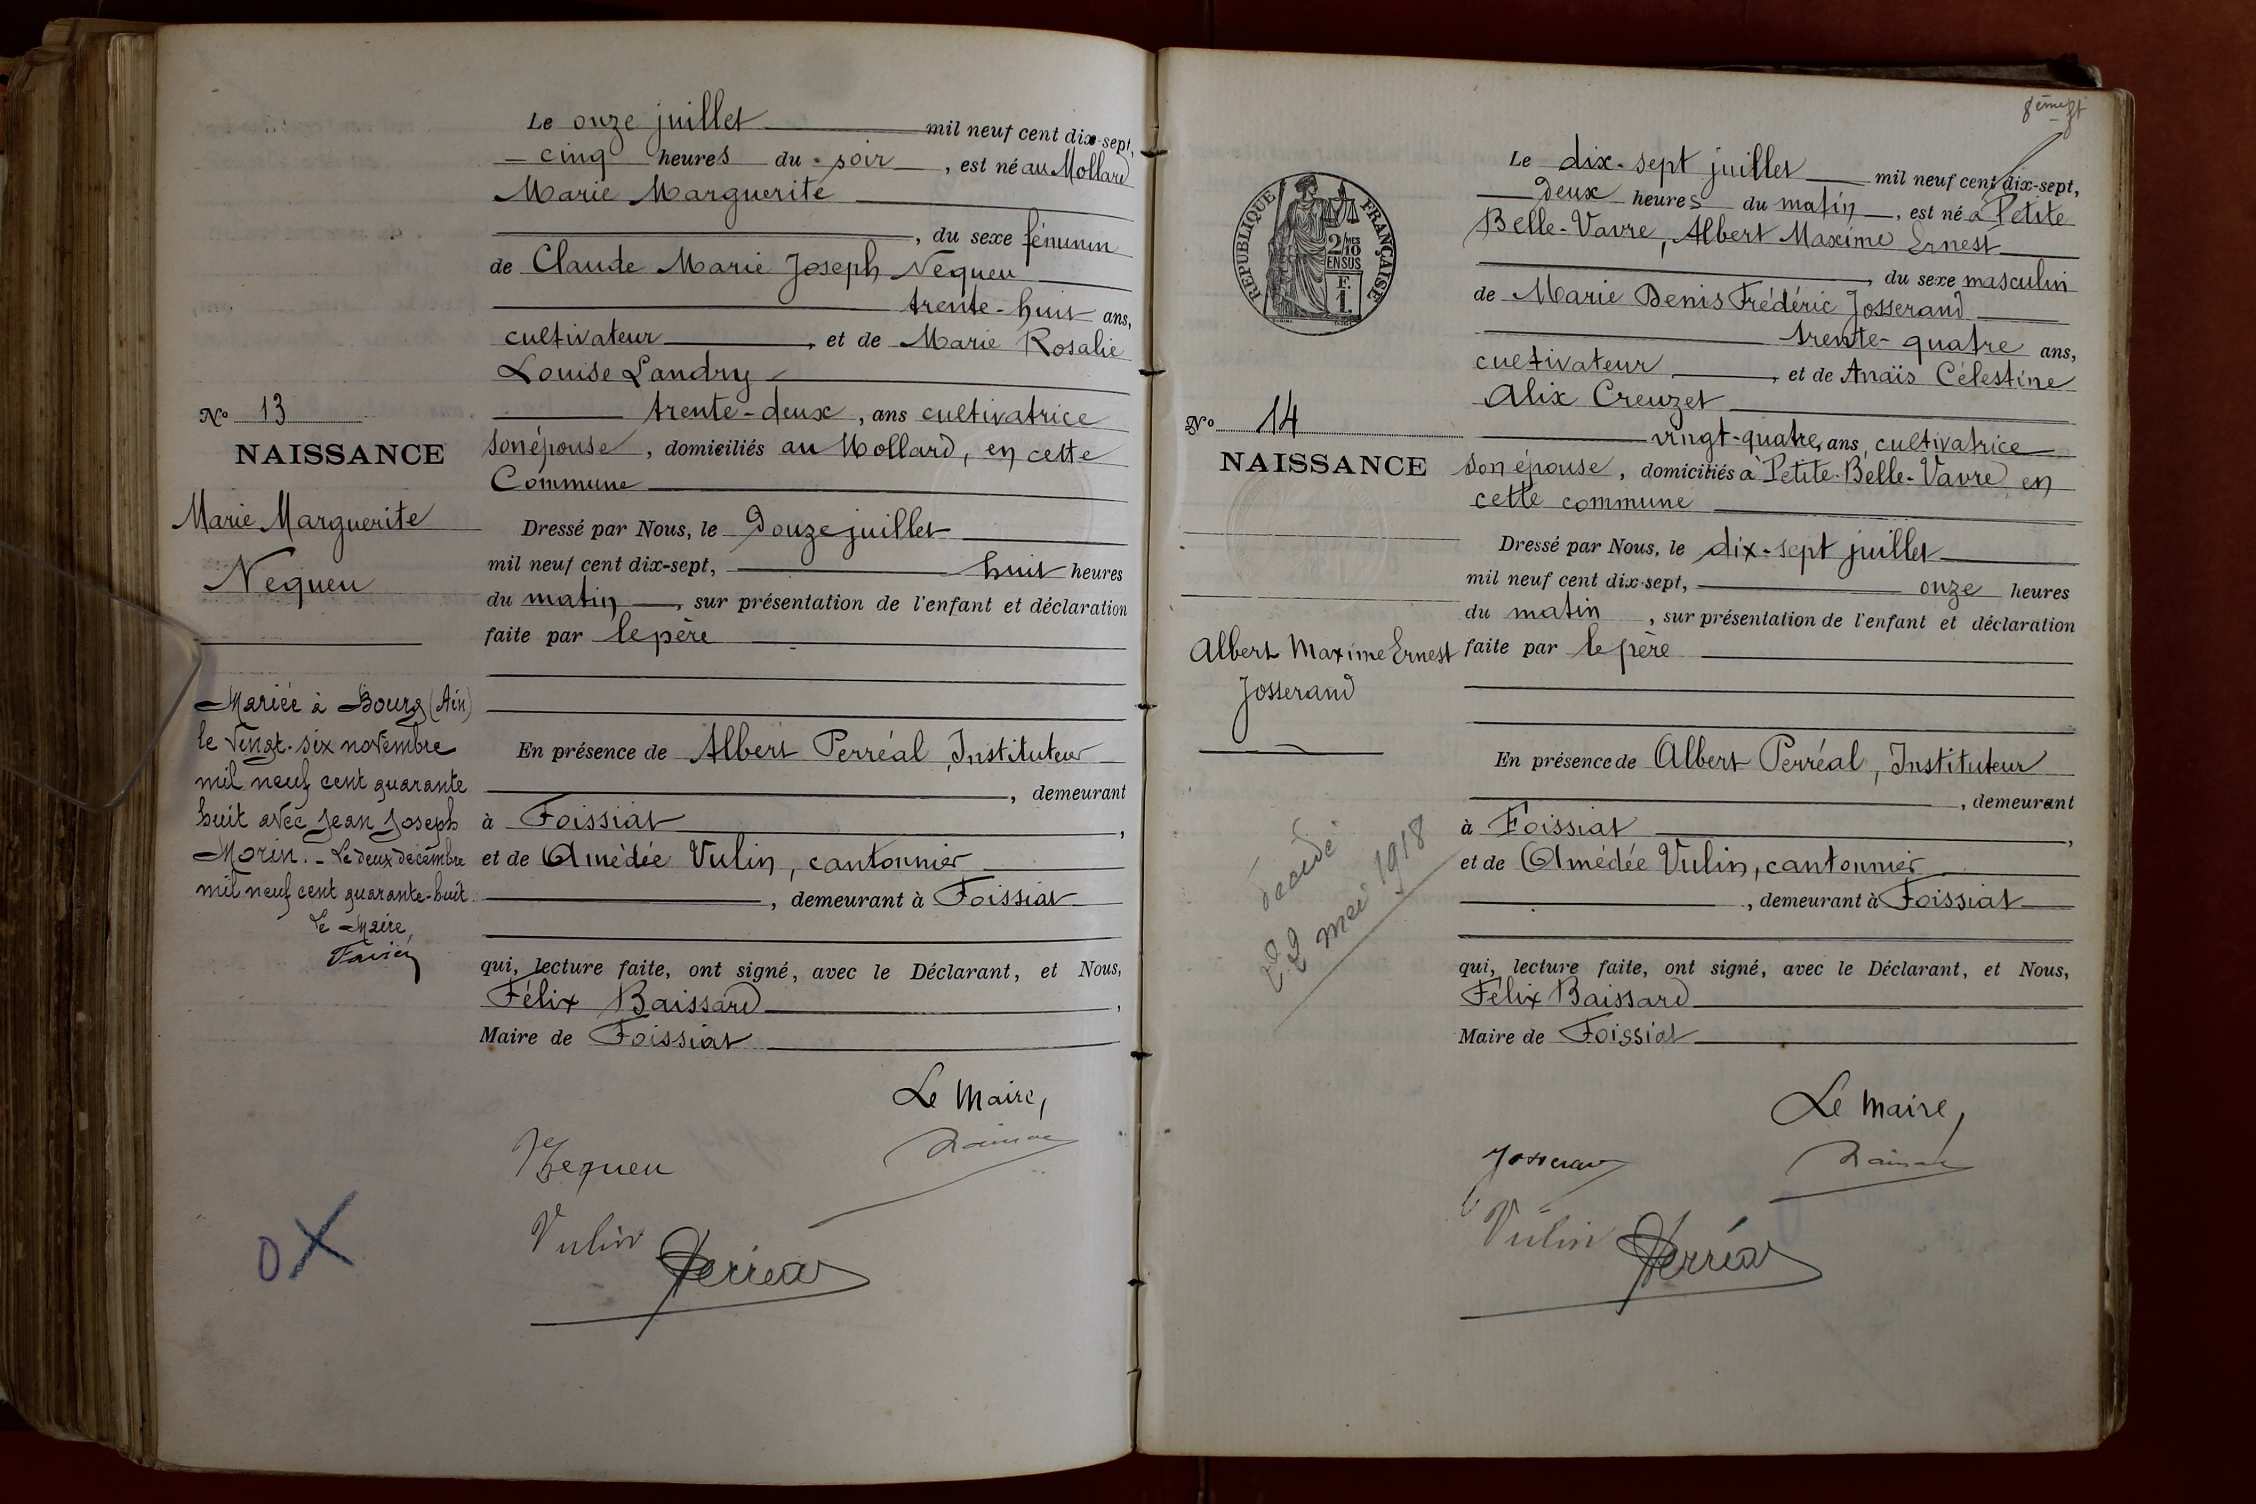 Le onze juillet mil neuf cent dix-sept,
cinq heures du soir, est né au Mollard
Marie Marguerite
, du sexe féminin
de Claude Marie Joseph Nequeu
trente-huit ans,
cultivateur, et de Marie Rosalie
Louise Landry
trente-deux, ans cultivatrice
son épouse, domiciliés au Mollard, en cette
Commune
No 13
NAISSANCE
Marie Marguerite
Nequeu
Dressé par Nous, le Douze juillet
mil neuf cent dix-sept, huit heures
du matin, sur présentation de l'enfant et déclaration
faite par le père
Mariée à Bourg (Ain)
le vingt-six novembre
mil neuf cent quarante
huit avec Jean Joseph
Morin. - Le deux décembre
mil neuf cent quarante-huit.
Le Maire,
En présence de Albert Perréal, Instituteur
, demeurant
à Foissiat,
et de Amédée Vulin, cantonnier
, demeurant à Foissiat
qui, lecture faite, ont signé, avec le Déclarant, et Nous,
Félix Baissard,
Maire de Foissiat
Le Maire,
Nequeu
Vulin
Perréal
OX
8ème ft
REPUBLIQUE FRANÇAISE
2/MES
10
EN SUS
F.
1.
Le dix-sept juillet mil neuf cent dix-sept,
Deux heures du matin, est né à Petite
Belle-Vavre, Albert Maxime Ernest
, du sexe masculin
de Marie Denis Frédéric Josserand
trente-quatre ans,
cultivateur, et de Anaïs Célestine
Alix Creuzet
vingt-quatre, ans, cultivatrice
son épouse, domiciliés à Petite-Belle-Vavre, en
cette commune
No 14
NAISSANCE
Albert Maxime Ernest
Josserand
Dressé par Nous, le dix-sept juillet
mil neuf cent dix-sept, onze heures
du matin, sur présentation de l'enfant et déclaration
faite par le père
décédé
22 mai 1918
En présence de Albert Perréal, Instituteur
, demeurant
à Foissiat,
et de Amédée Vulin, cantonnier
, demeurant à Foissiat
qui, lecture faite, ont signé, avec le Déclarant, et Nous,
Félix Baissard
Maire de Foissiat
Le Maire,
Josserand
Vulin
Perréal